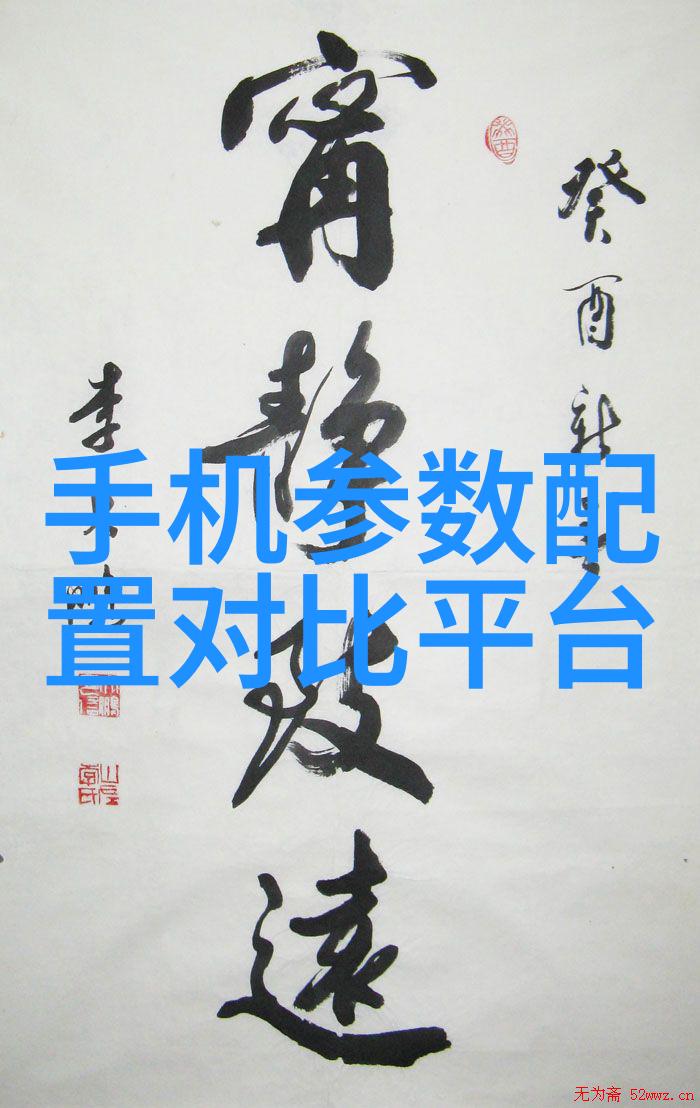 癸酉新春
寧靜致遠
李大鹏
手机参数配
置对比平台
无为斋 52wwz.cn